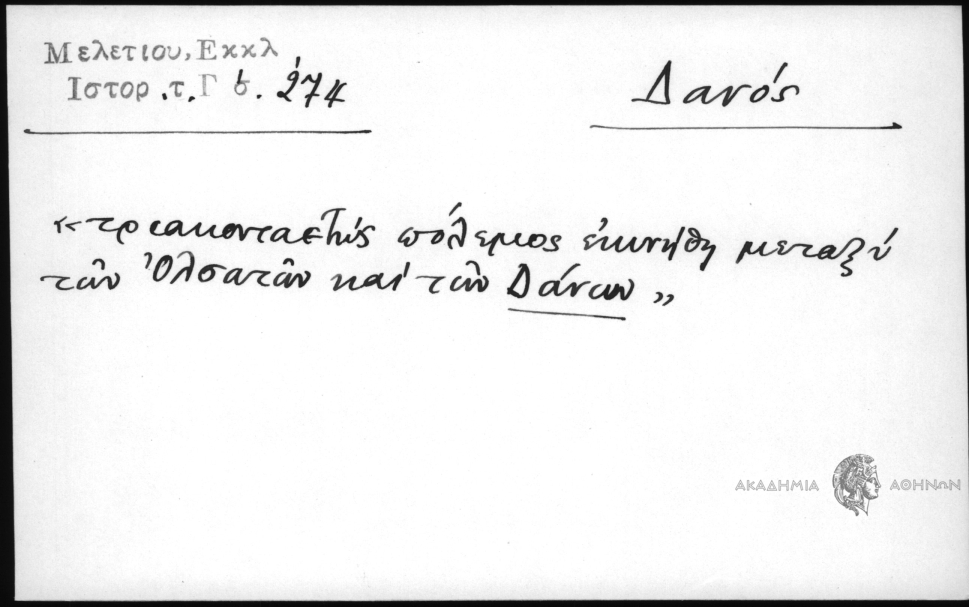 Μελετιου, Εκκλ
Ιστορ .τ. Γ σ. 274
Δανός
«τριακονταετὴς πόλεμος ἐκινήθη μεταξὺ
τῶν Ὀλσατῶν καὶ τῶν Δάνων»
ΑΚΑΔΗΜΙΑ ΑΘΗΝΩΝ